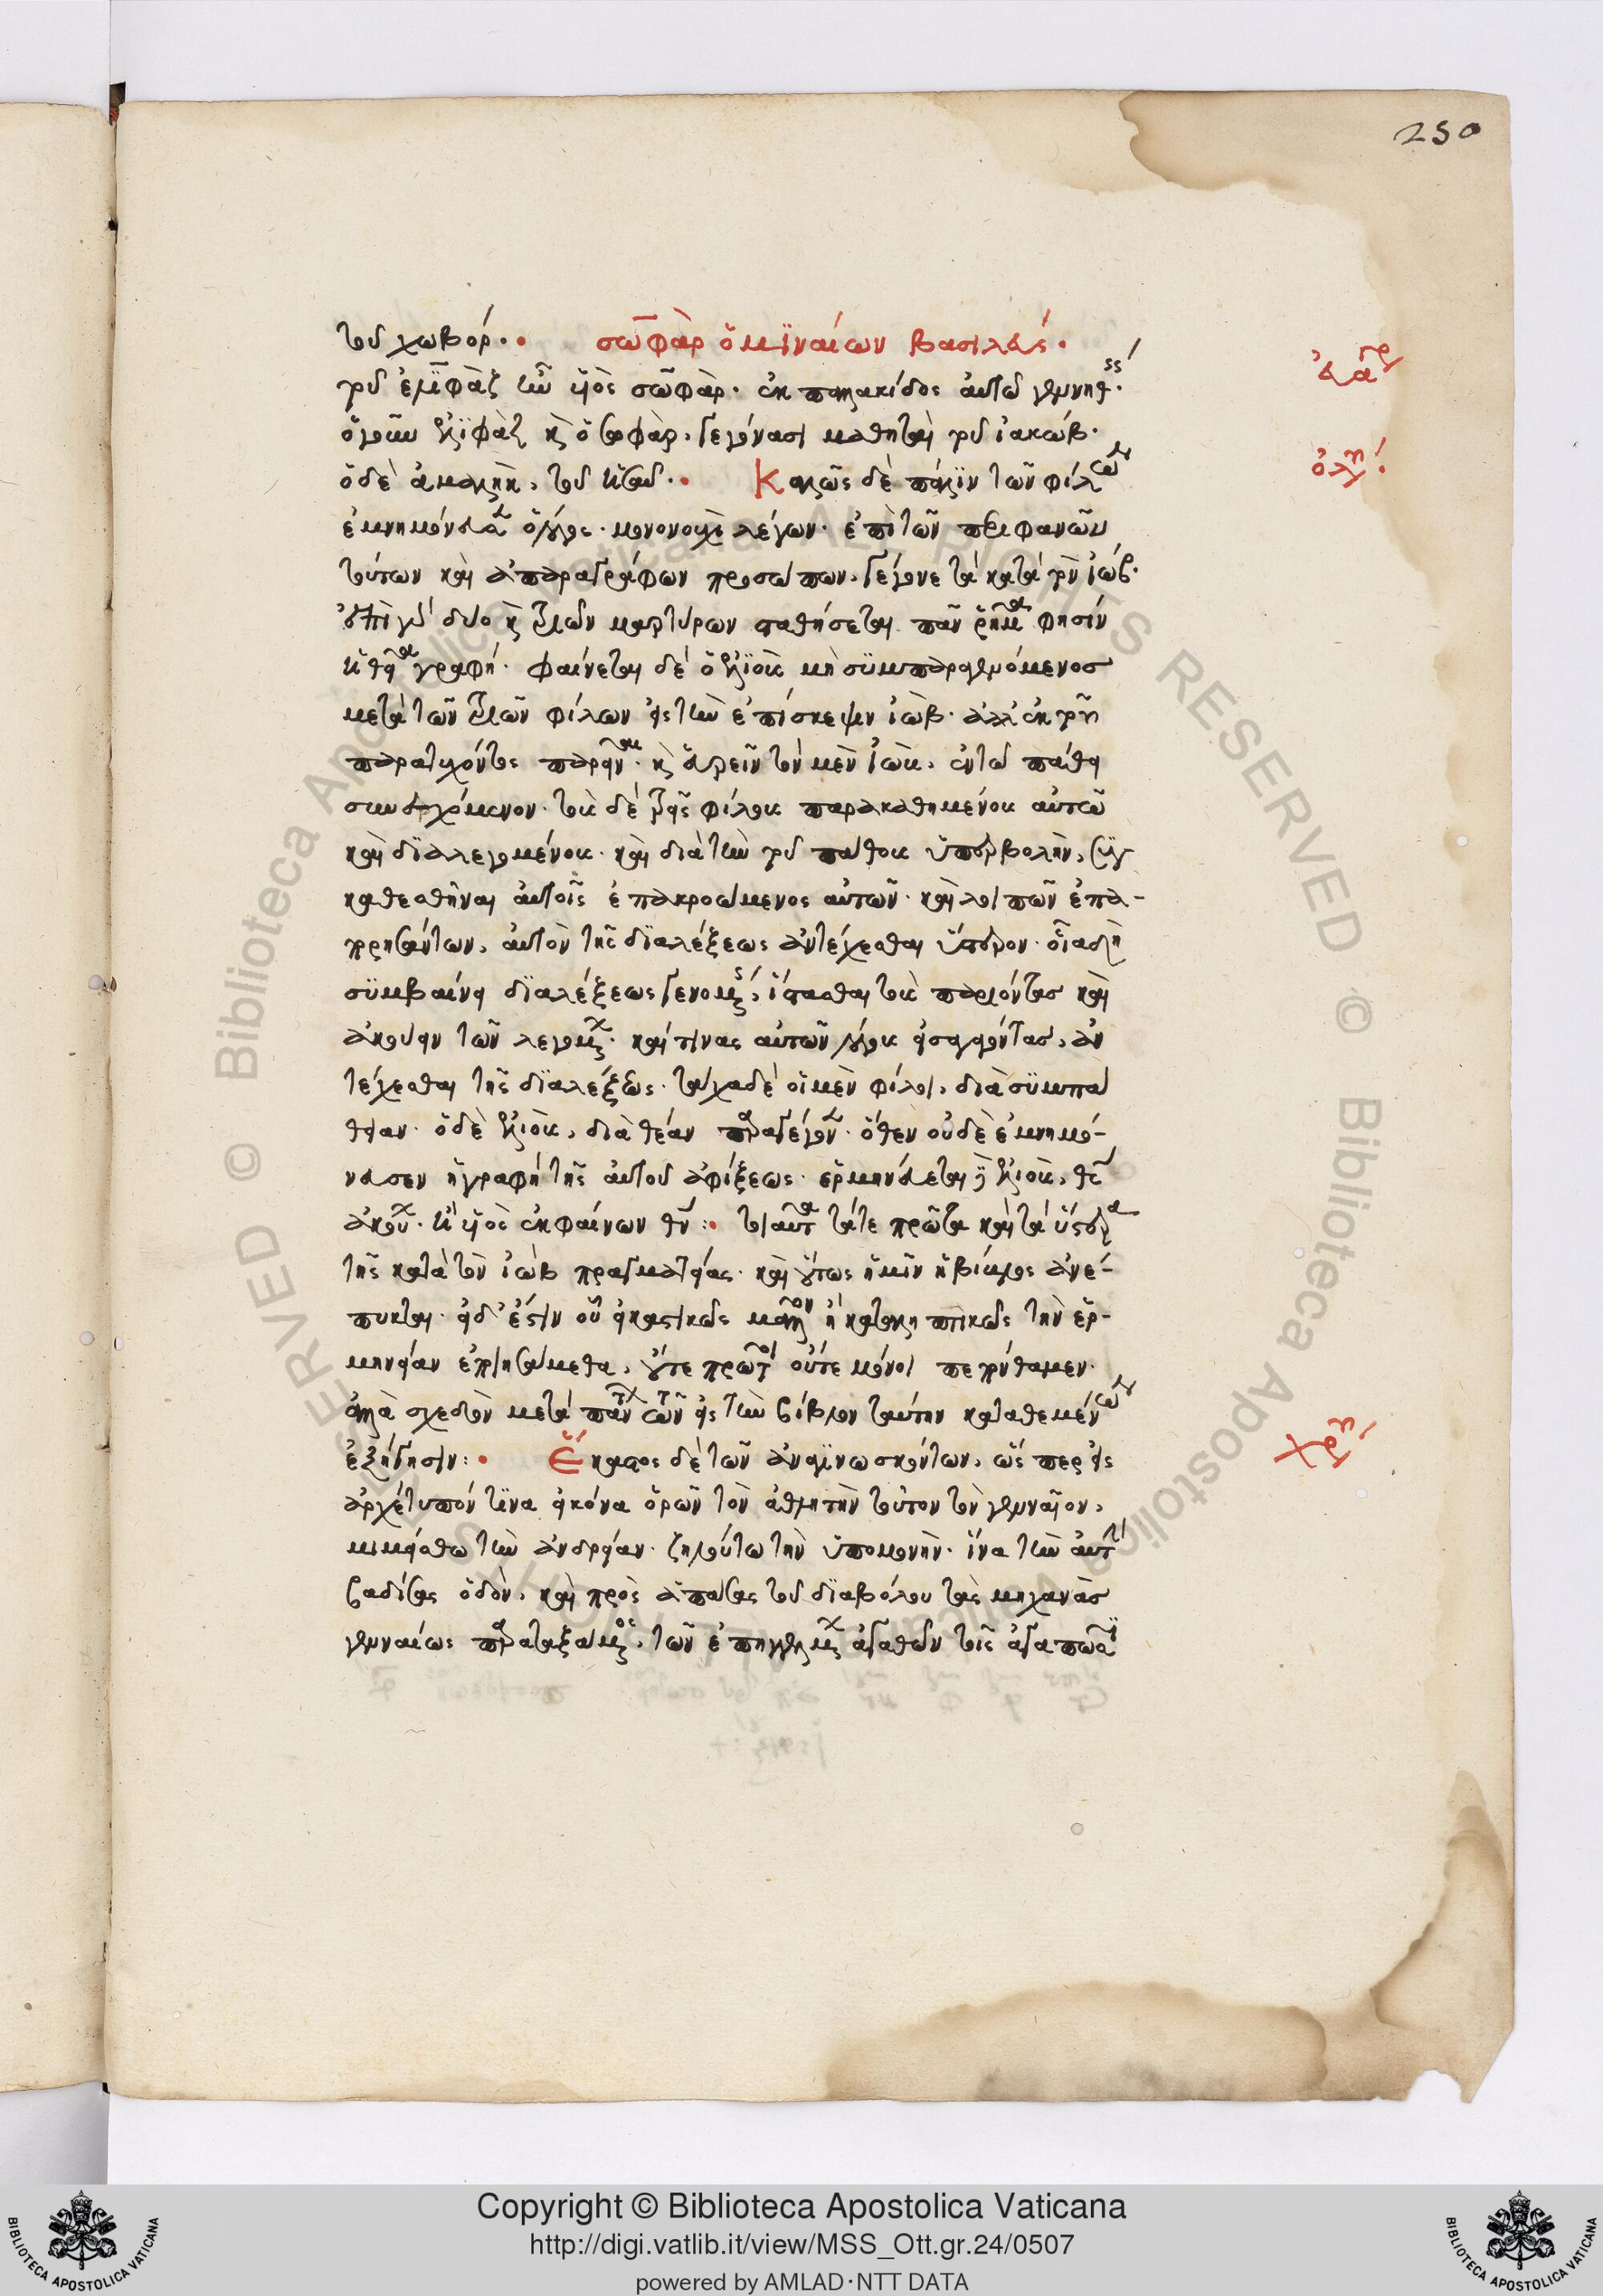 250
τοῦ χωβόρ. σωφὰρ ὁ μιναίων βασιλεύς.
τοῦ ἐλιφὰζ ἦν υἱὸς σωφὰρ. ἐκ παλλακίδος αὐτῷ γεννηθείς.
ὁ γοῦν ἐλιφὰζ καὶ ὁ σωφὰρ, γεγόνασι μαθηταὶ τοῦ ἰακώβ.
ὁ δὲ ἀμαλὴκ, τοῦ ἠσαῦ. Καλῶς δὲ πάλιν τῶν φίλων
ἐμνημόνευσεν ὁ λόγος. μονονουχὶ λέγων. ἐπὶ τῶν περιφανῶν
τούτων καὶ ἀπαραγράφων προσώπων, γέγονε τὰ κατὰ τὸν ἰώβ.
ἐπὶ γὰρ δύο καὶ τριῶν μαρτύρων σταθήσεται πᾶν ῥῆμα φησὶν
ἡ θεία γραφή. φαίνεται δὲ ὁ ἐλιοὺς μὴ συμπαραγενόμενος
μετὰ τῶν τριῶν φίλων εἰς τὴν ἐπίσκεψιν ἰώβ. ἀλλ' ἐκ τοῦ
παρατυχόντος παρεῖναι. καὶ εὑρεῖν τὸν μὲν ἰὼβ, ἐν τῷ πάθει
συνεχόμενον. τοὺς δὲ τρεῖς φίλους παρακαθημένους αὐτῷ
καὶ διαλεγομένους. καὶ διὰ τὴν τοῦ πάθους ὑπερβολὴν, συγ
καθεσθῆναι αὐτοῖς ἐπακροώμενος αὐτῶν. καὶ λοιπῶν ἐπα-
πορησάντων, αὐτὸν τῆς διαλέξεως ἀντέχεσθαι ὕστερον. οἷα δὴ
συμβαίνει διαλέξεως γενομένης, ἵστασθαι τοὺς παριόντας καὶ
ἀκούειν τῶν λεγομένων. καί τινας αὐτῶν λόγους εἰσαγαγόντας, ἀν
τέχεσθαι τῆς διαλέξεως. τάχα δὲ οἱ μὲν φίλοι, διὰ συμπά
θειαν. ὁ δὲ ἐλιοὺς, διὰ θέαν παραγέγονεν. ὅθεν οὐδὲ ἐμνημό-
νευσεν ἡ γραφὴ τῆς αὐτοῦ ἀφίξεως. ἑρμηνεύεται δὲ ἐλιοὺς, θεοῦ
ἀκούων. ἢ υἱὸς ἐκφαίνων θεόν: τοιαῦτα τά τε πρῶτα καὶ τὰ ὕστερα
τῆς κατὰ τὸν ἰὼβ πραγματείας. καὶ οὕτως ἡμῖν ἡ βίβλος ἀνέ-
πτυκται. εἰ δ' ἔστιν οὗ εἰκαστικῶς μᾶλλον ἢ καταληπτικῶς τὴν ἑρ-
μηνείαν ἐποιησάμεθα, οὔτε πρῶτοι οὔτε μόνοι πεπόνθαμεν.
ἀλλὰ σχεδὸν μετὰ πάντων τῶν εἰς τὴν βίβλον ταύτην καταθεμένων
ἐξήγησιν: Ἕκαστος δὲ τῶν ἀναγινωσκόντων, ὥσπερ εἰς
ἀρχέτυπόν τινα εἰκόνα ὁρῶν τὸν ἀθλητὴν τοῦτον τὸν γενναῖον,
μιμείσθω τὴν ἀνδρείαν. ζηλούτω τὴν ὑπομονήν. ἵνα τὴν αὐτὴν
βαδίσας ὁδὸν, καὶ πρὸς ἁπάσας τοῦ διαβόλου τὰς μηχανὰς
γενναίως παραταξάμενος, τῶν ἐπηγγελμένων ἀγαθῶν τοῖς ἀγαπῶσι
ὀλυ
χρυ
Copyright © Biblioteca Apostolica Vaticana
http://digi.vatlib.it/view/MSS_Ott.gr.24/0507
powered by AMLAD·NTT DATA
BIBLIOTECA APOSTOLICA VATICANA
BIBLIOTECA APOSTOLICA VATICANA